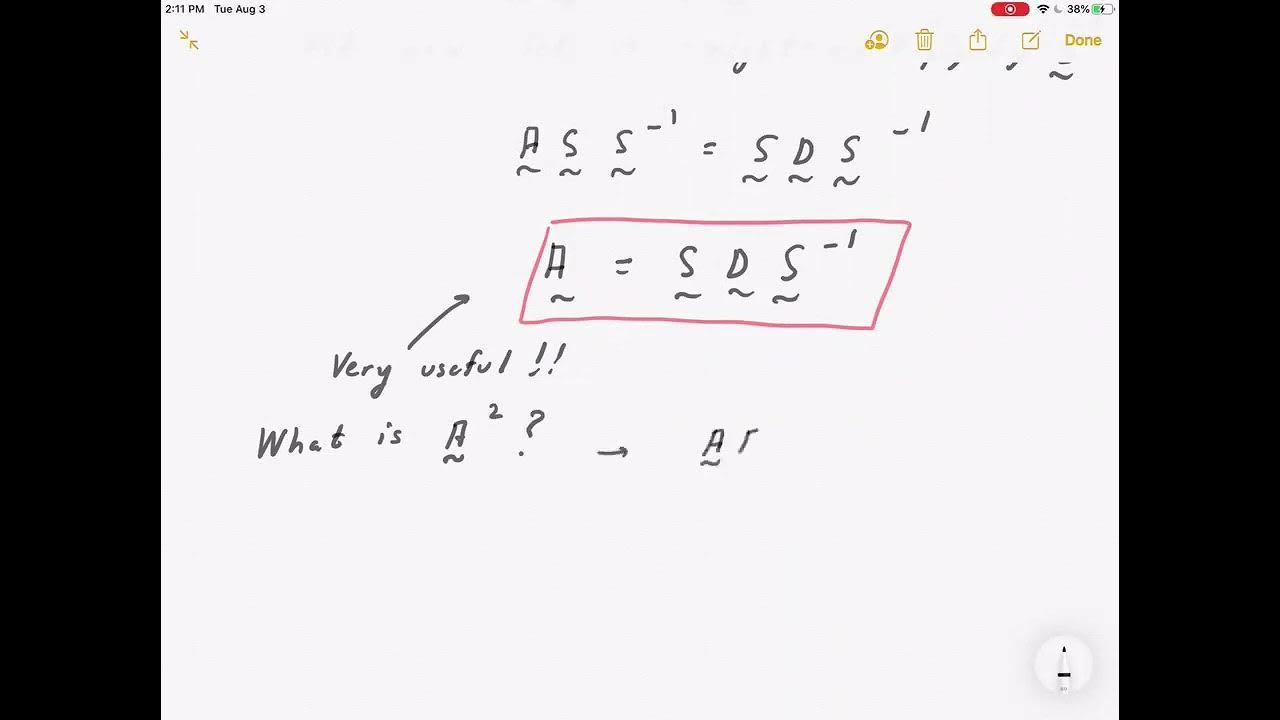 2:11 PM Tue Aug 3 38%
Done
A S S⁻¹ = S D S⁻¹
A = S D S⁻¹
Very useful !!
What is A² ? → A